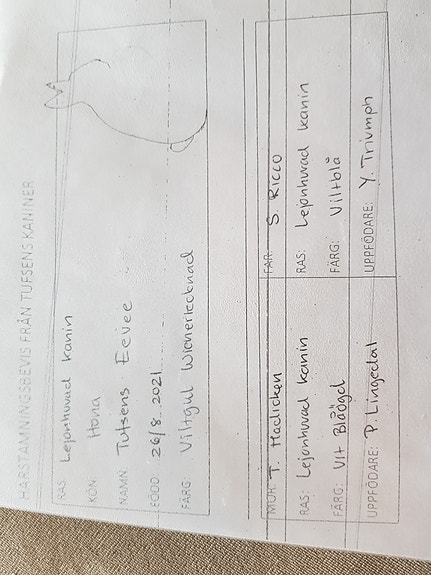 HÄRSTAMNINGSBEVIS FRÅN TUFSENS KANINER
RAS: Lejonhuvad kanin
KÖN Hona
NAMN Tufsens Eevee
FÖDD 26/8 2021
FÄRG: Viltgul Wienertecknad
MOR: T. Haclicken
RAS: Lejonhuvad kanin
FÄRG: Vit Blåögd
UPPFÖDARE: P. Lingedal
FAR: S. RICCO
RAS: Lejonhuvad kanin
FÄRG: Viltblå
UPPFÖDARE: Y. Triumph